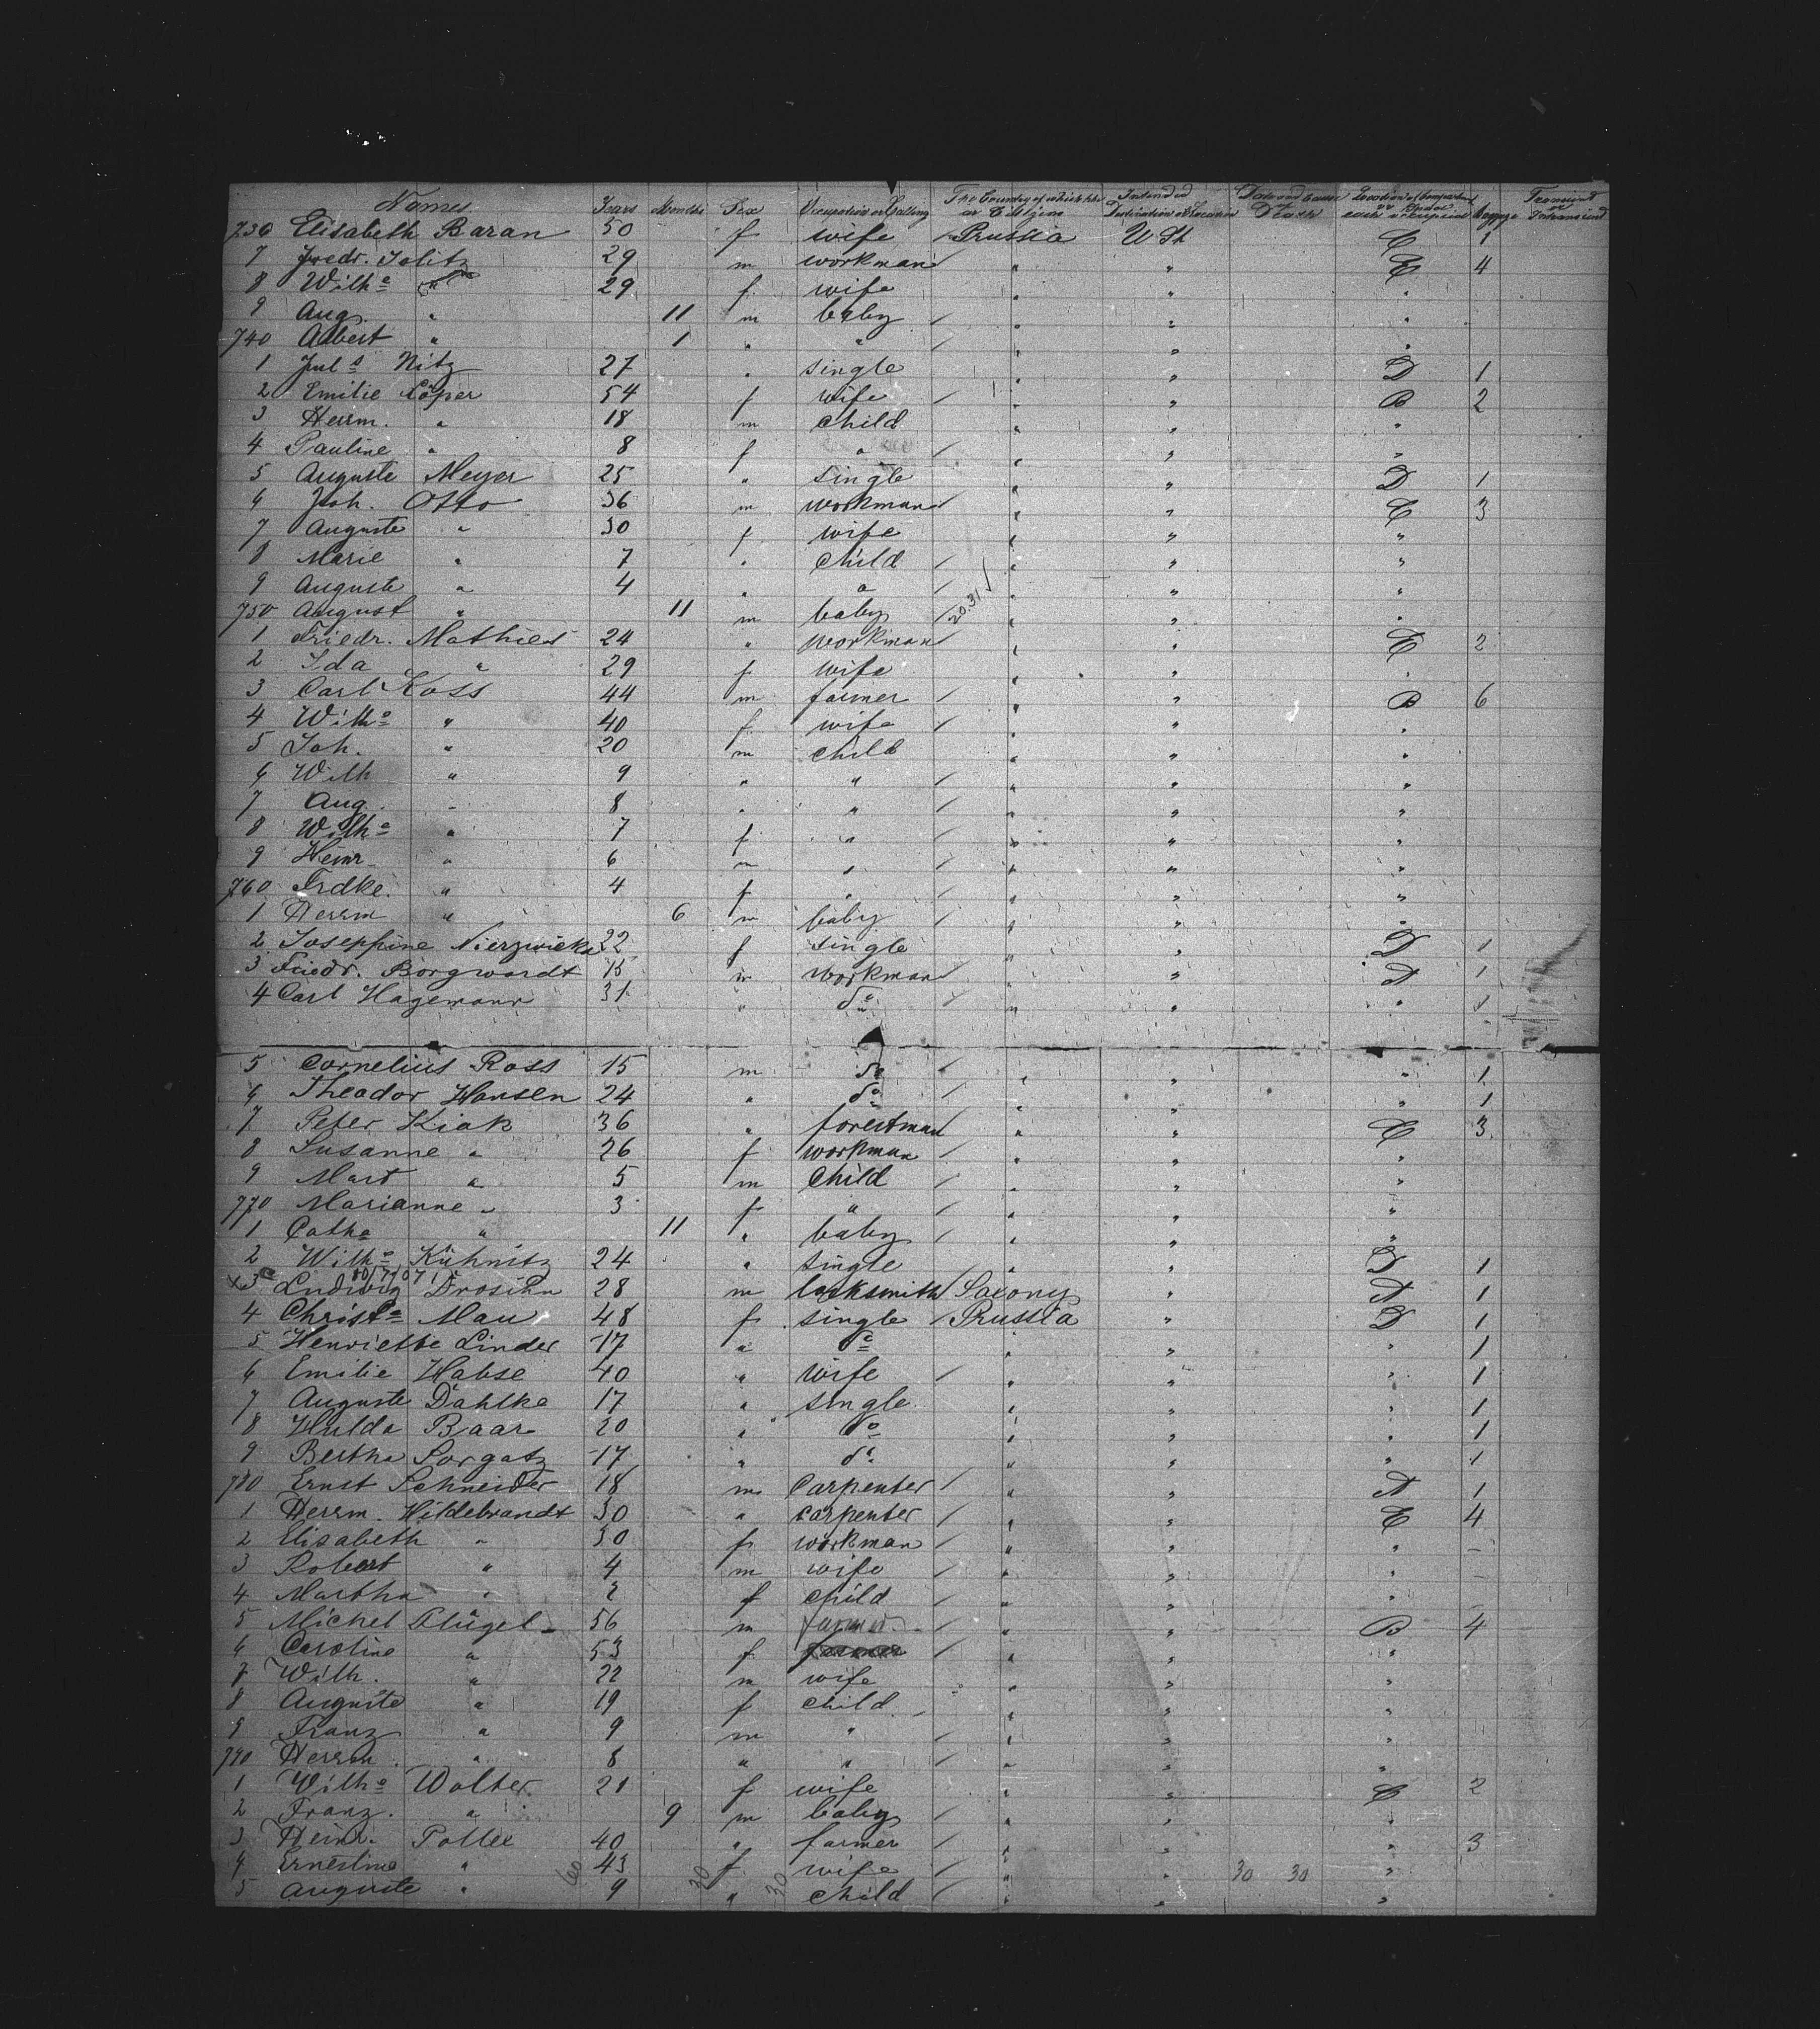 Names Years Months Sex Occupation or Calling The Country of which they are Citizens Intended Destination or Location Date and Cause of Death Location of Compartment or Space each occupied Baggage Transient or Intransient
736 Elisabeth Baran 50 f wife / Prussia U St C 1
7 Fredr. Jolitz 29 m workman / " " E 4
8 Wilhe " 29 f wife " " "
9 Aug. " 11 m baby / " " "
740 Albert " 1 " " / " " "
1 Juls Nitz 27 " single " " D 1
2 Emilie Löper 54 f wife / " " B 2
3 Herrm. " 18 m child " " "
4 Pauline " 8 f " / " " "
5 Auguste Meyer 25 " single " " D 1
6 Joh. Otto 36 m workman / " " C 3
7 Auguste " 30 f wife " " "
8 Marie " 7 " child / " " "
9 Auguste " 4 " " " " "
750 August " 11 m baby / 20.31 √ " " "
1 Friedr. Mathies 24 " workman / " " E 2
2 Ida " 29 f wife " " "
3 Carl Koss 44 m farmer / " " B 6
4 Wilhe " 40 f wife / " " "
5 Joh. " 20 m child " " "
6 Wilh " 9 " " / " " "
7 Aug. " 8 " " / " " "
8 Wilhe " 7 f " / " " "
9 Heinr " 6 m " / " " "
760 Frdke. " 4 f " / " " "
1 Herrm " 6 m baby / " " "
2 Josephine Nierzwicka 22 f single " " D 1
3 Friedr. Borgwardt 15 m workman / " " A 1
4 Carl Hagemann 31 " do / " " " 1
5 Cornelius Ross 15 m do / " " " 1
6 Theodor Hansen 24 " do / " " " 1
7 Peter Kiak 36 " forestman / " " C 3
8 Susanne " 26 f workman / " " "
9 Mart " 5 m child / " " "
770 Marianne " 3 f " / " " "
1 Catha " 11 " baby / " " "
2 Wilhe Kühnitz 24 " single " " D 1
x3 Ludwig Drosihn 28 m locksmith / Saxony " A 1
4 Christe Mau 48 f single / Prussia " D 1
5 Henriette Linder 17 " do " " " 1
6 Emilie Habse 40 " wife / " " " 1
7 Auguste Dahlke 17 " single " " " 1
8 Hulda Baar 20 " do " " " 1
9 Bertha Sorgatz 17 " do " " " 1
780 Ernst Schneider 18 m carpenter / " " A 1
1 Herrm. Hildebrandt 30 " carpenter / " " E 4
2 Elisabeth " 30 f workman / " " " -
3 Robert " 4 m wife / " " "
4 Martha " 2 f child / " " "
5 Michel Flügel 56 m farmer / " " B 4
6 Caroline " 53 f farmer / " " "
7 Wilh. " 22 m wife " " "
8 Auguste " 19 f child " " "
9 Franz " 9 m " / " " "
790 Herrm. " 8 " " / " " "
1 Wilhe Wolter 21 f wife / " " C 2
2 Franz. " 9 m baby / " " "
3 Heinr. Pollex 40 " farmer / " " " 3
4 Ernestine " 43 f wife / " " 30 30 "
5 Auguste " 9 " child / " " "